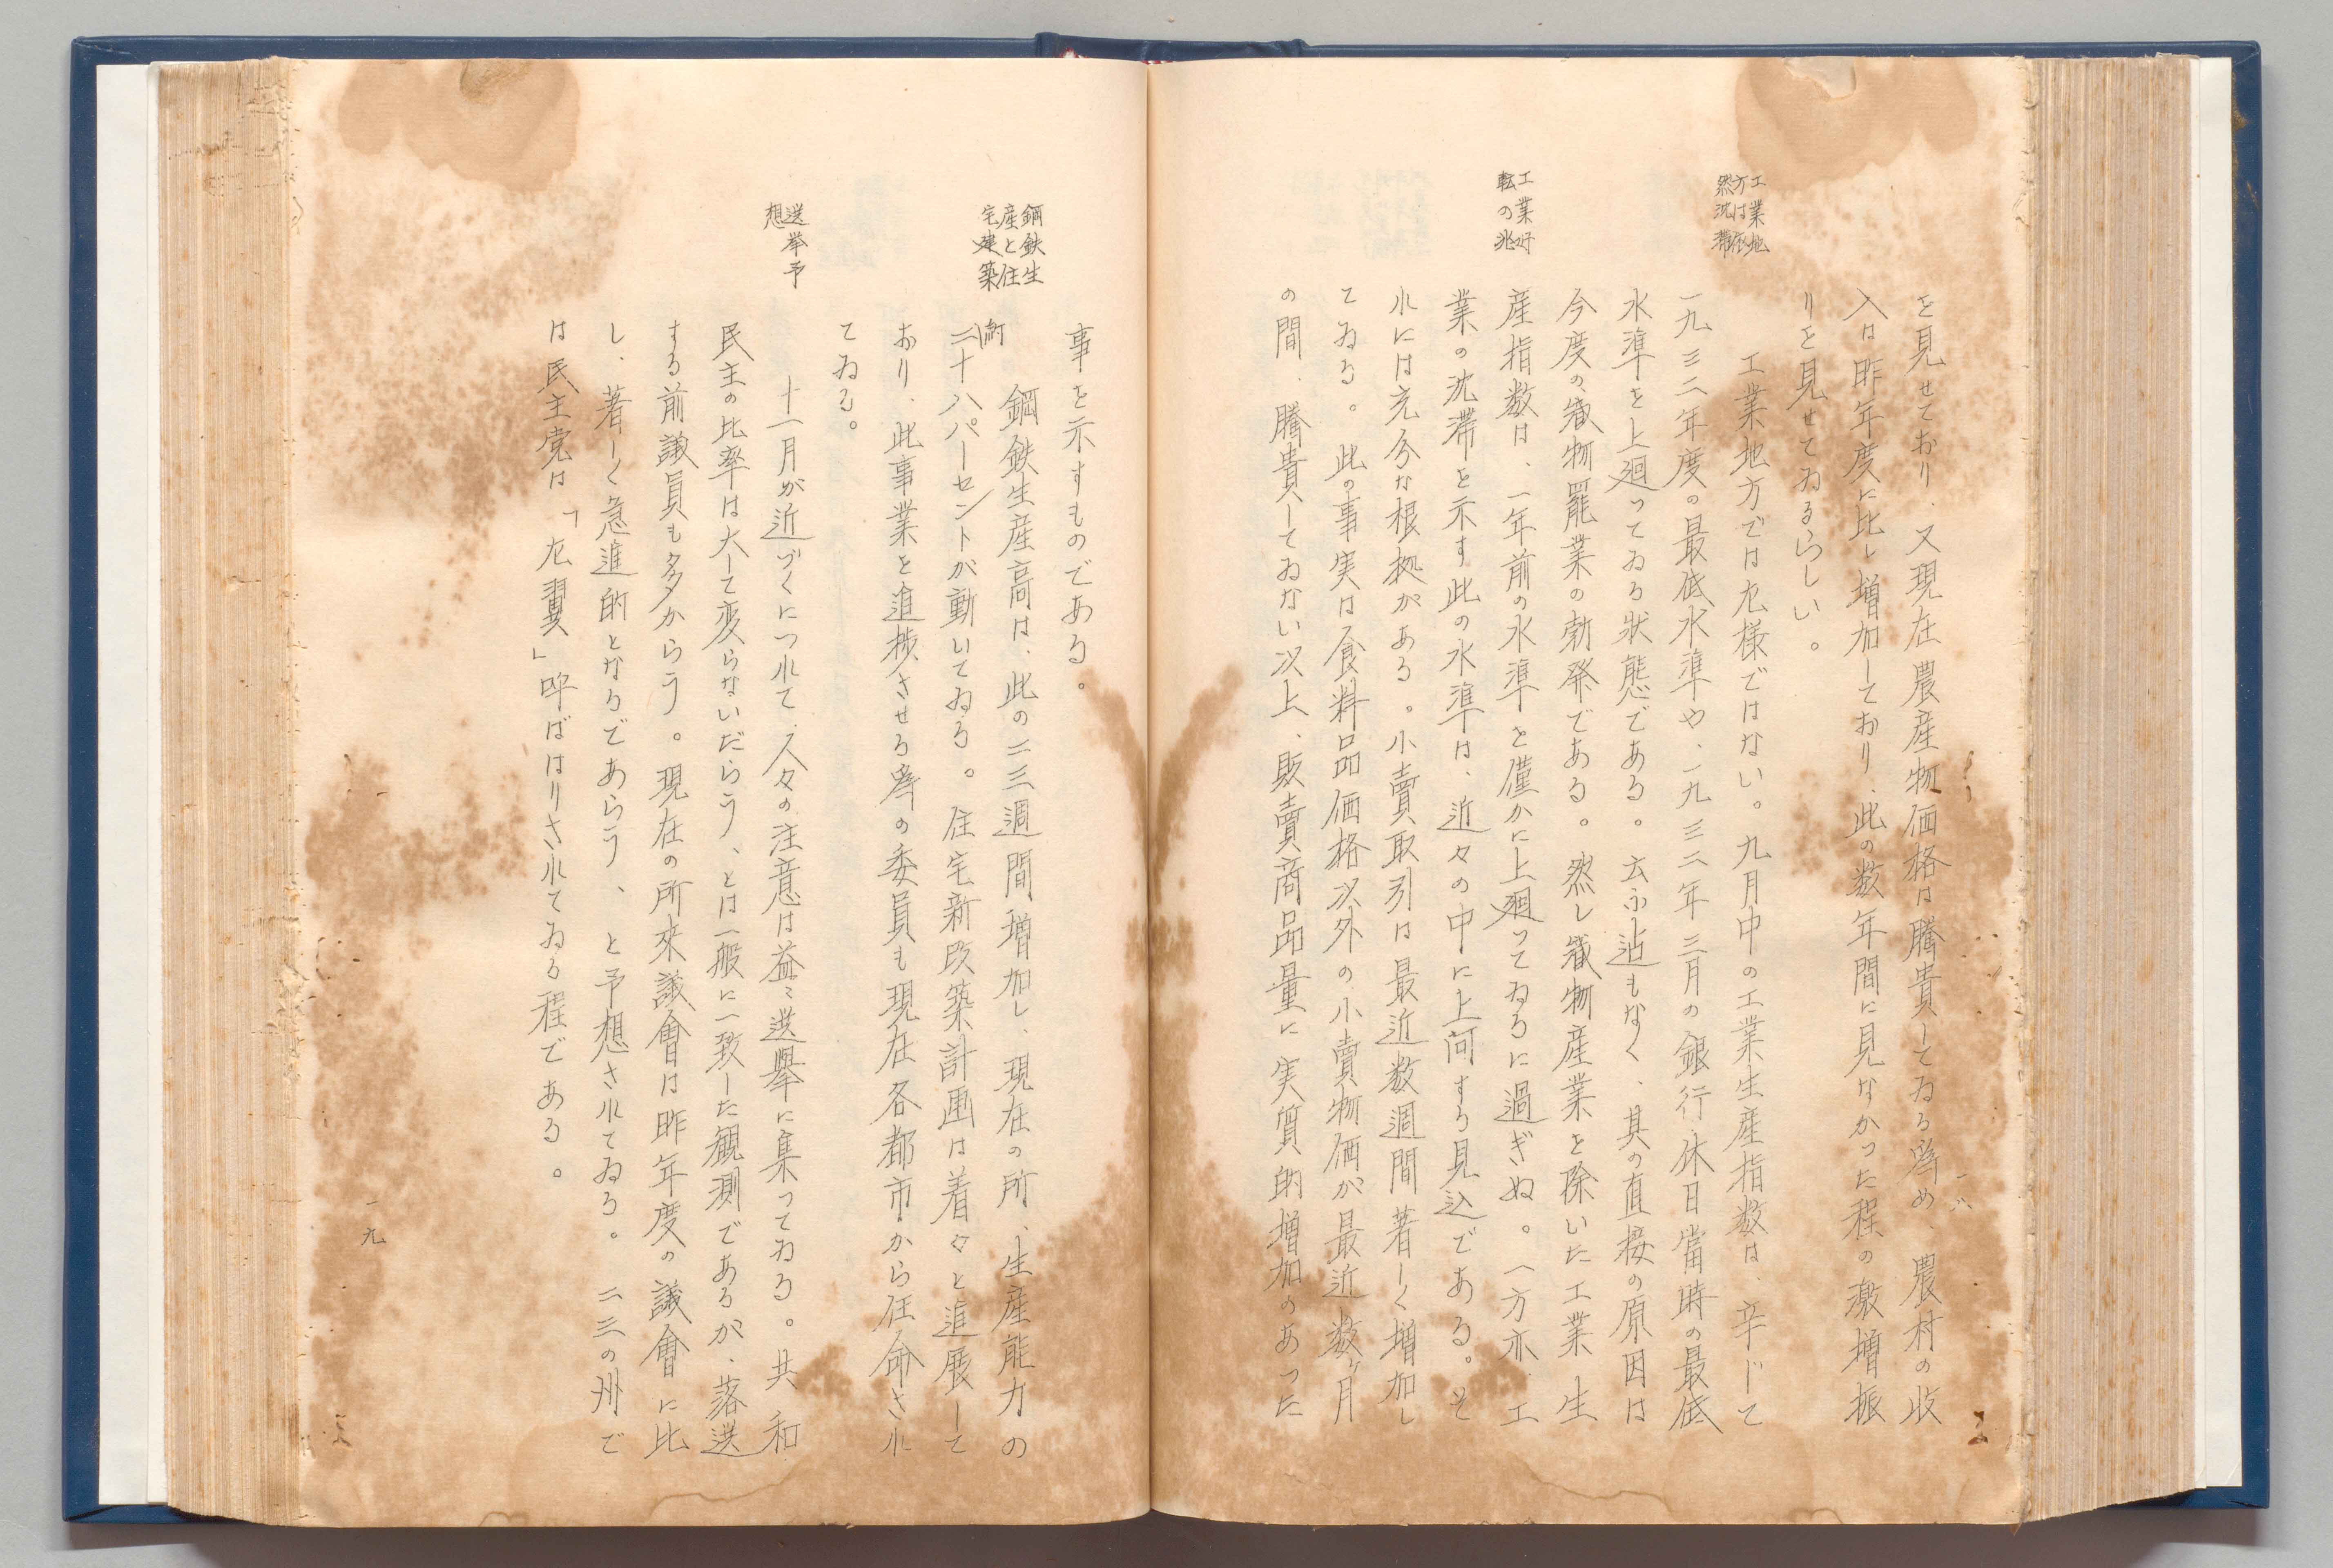 工業地
方は依
然沈滞
工業好
転の兆
を見せており、又現在農産物価格は騰貴してゐる為め、農村の收
入は昨年度に比し増加しており、此の数年間に見なかった程の激増振
りを見せてゐるらしい。
工業地方では左様ではない。九月中の工業生産指数は、辛じて
一九三二年度の最低水準や、一九三三年三月の銀行休日當時の最低
水準を上廻ってゐる状態である。云ふ迠もなく、其の直接の原因は
今度の織物罷業の勃発である。然し織物産業を除いた工業生
産指数は、一年前の水準を僅かに上廻ってゐるに過ぎぬ。一方亦、工
業の沈滞を示す此の水準は、近々の中に上向する見込である。そ
れには充分な根拠がある。小賣取引は最近数週間著しく増加し
てゐる。此の事実は食料品価格以外の小賣物価が最近数ヶ月
の間、騰貴してゐない以上、販賣商品量に実質的増加のあった
一八
鋼鉄生
産と住
宅建築
選挙予
想
事を示すものである。
鋼鉄生産高は、此の二三週間増加し、現在の所、生産能力の
約二十八パーセントが動いてゐる。住宅新改築計画は着々と進展して
おり、此事業を進捗させる為の委員も現在各都市から任命され
てゐる。
十一月が近づくにつれて、人々の注意は益々選擧に集ってゐる。共和
民主の比率は大して変らないだらう、とは一般に一致した観測であるが、落選
する前議員も多からう。現在の所來議會は昨年度の議會に比
し、著しく急進的となるであらう、と予想されてゐる。二三の州で
は民主党は「左翼」呼ばはりされてゐる程である。
一九